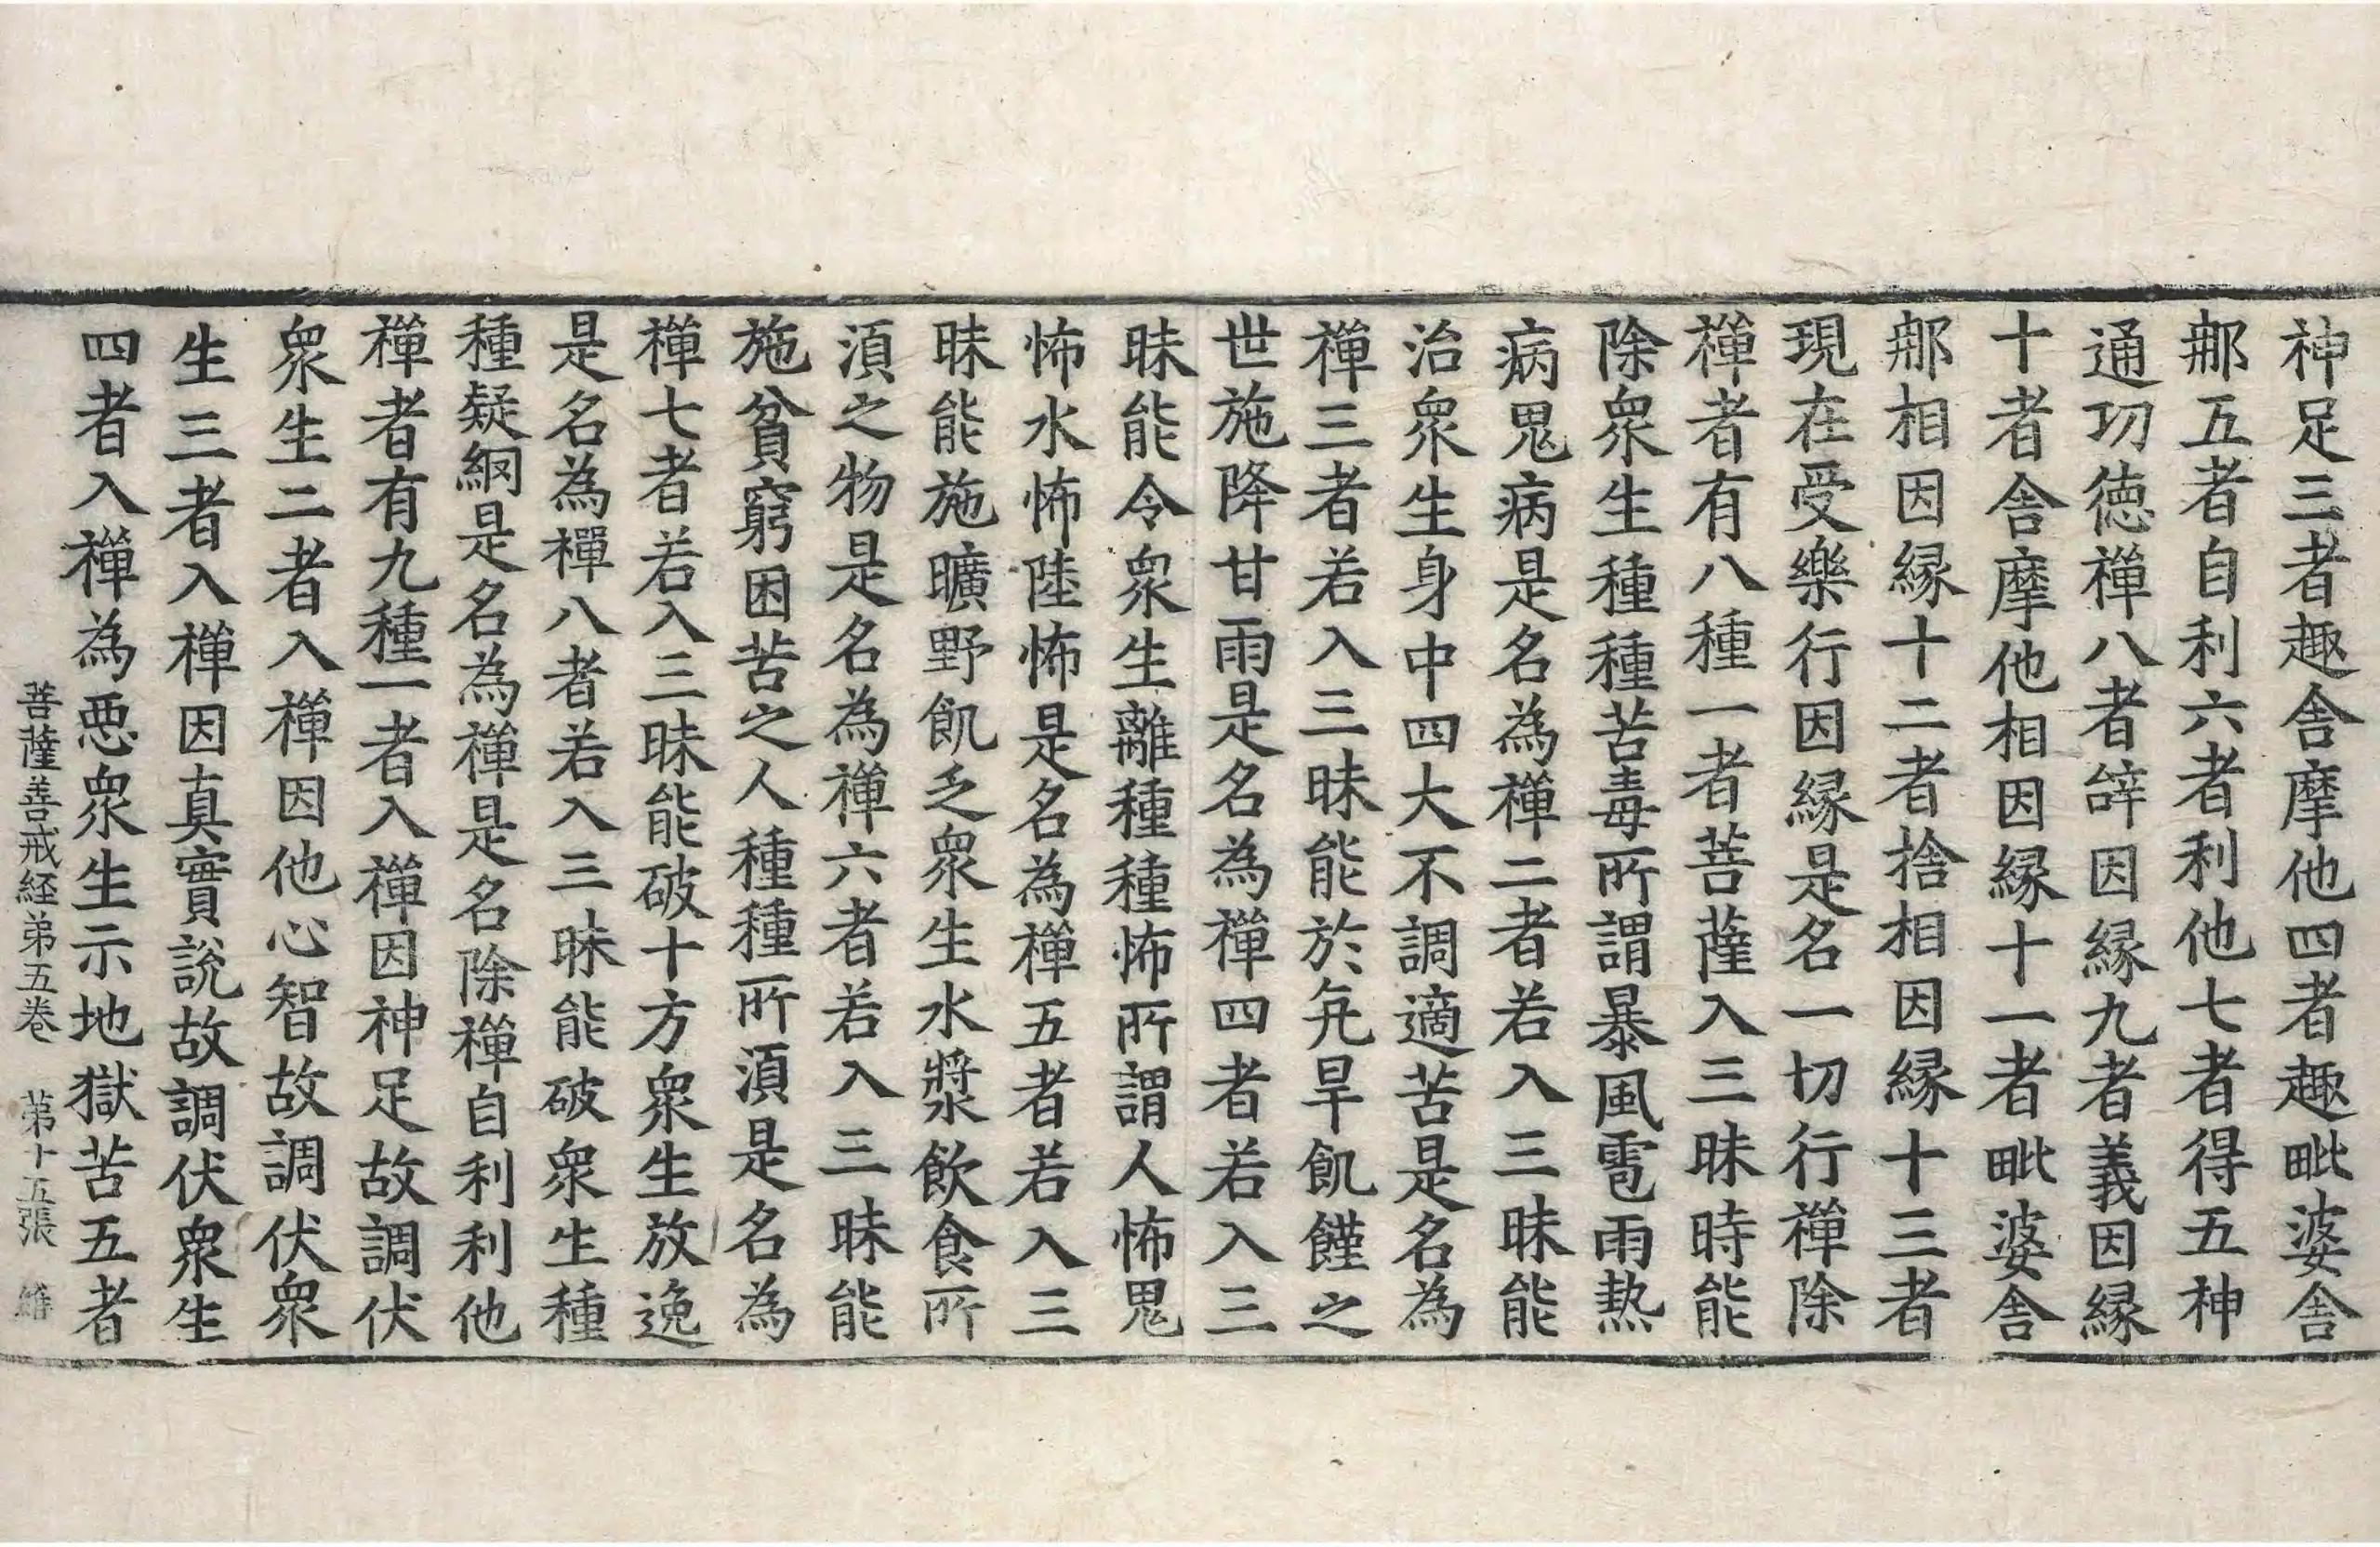 神足三者趣舍摩他四者趣毗婆舍
那五者自利六者利他七者得五神
通功德禪八者辝因縁九者義因縁
十者舍摩他相因縁十一者毗婆舍
那相因縁十二者捨相因縁十三者
現在受樂行因縁是名一切行禪除
禪者有八種一者菩薩入三昧時能
除衆生種種苦毒所謂暴風雹雨熱
病鬼病是名為禪二者若入三昧能
治衆生身中四大不調適苦是名為
禪三者若入三昧能於亢旱飢饉之
世施降甘雨是名為禪四者若入三
昧能令衆生離種種怖所謂人怖鬼
怖水怖陸怖是名為禪五者若入三
昧能施曠野飢乏衆生水漿飲食所
湏之物是名為禪六者若入三昧能
施貧窮困苦之人種種所湏是名為
禪七者若入三昧能破十方衆生放逸
是名為禪八者若入三昧能破衆生種
種疑網是名為禪是名除禪自利利他
禪者有九種一者入禪因神足故調伏
衆生二者入禪因他心智故調伏衆
生三者入禪因真實說故調伏衆生
四者入禪為惡衆生示地獄苦五者
菩薩善戒経弟五卷 苐十五張 籍